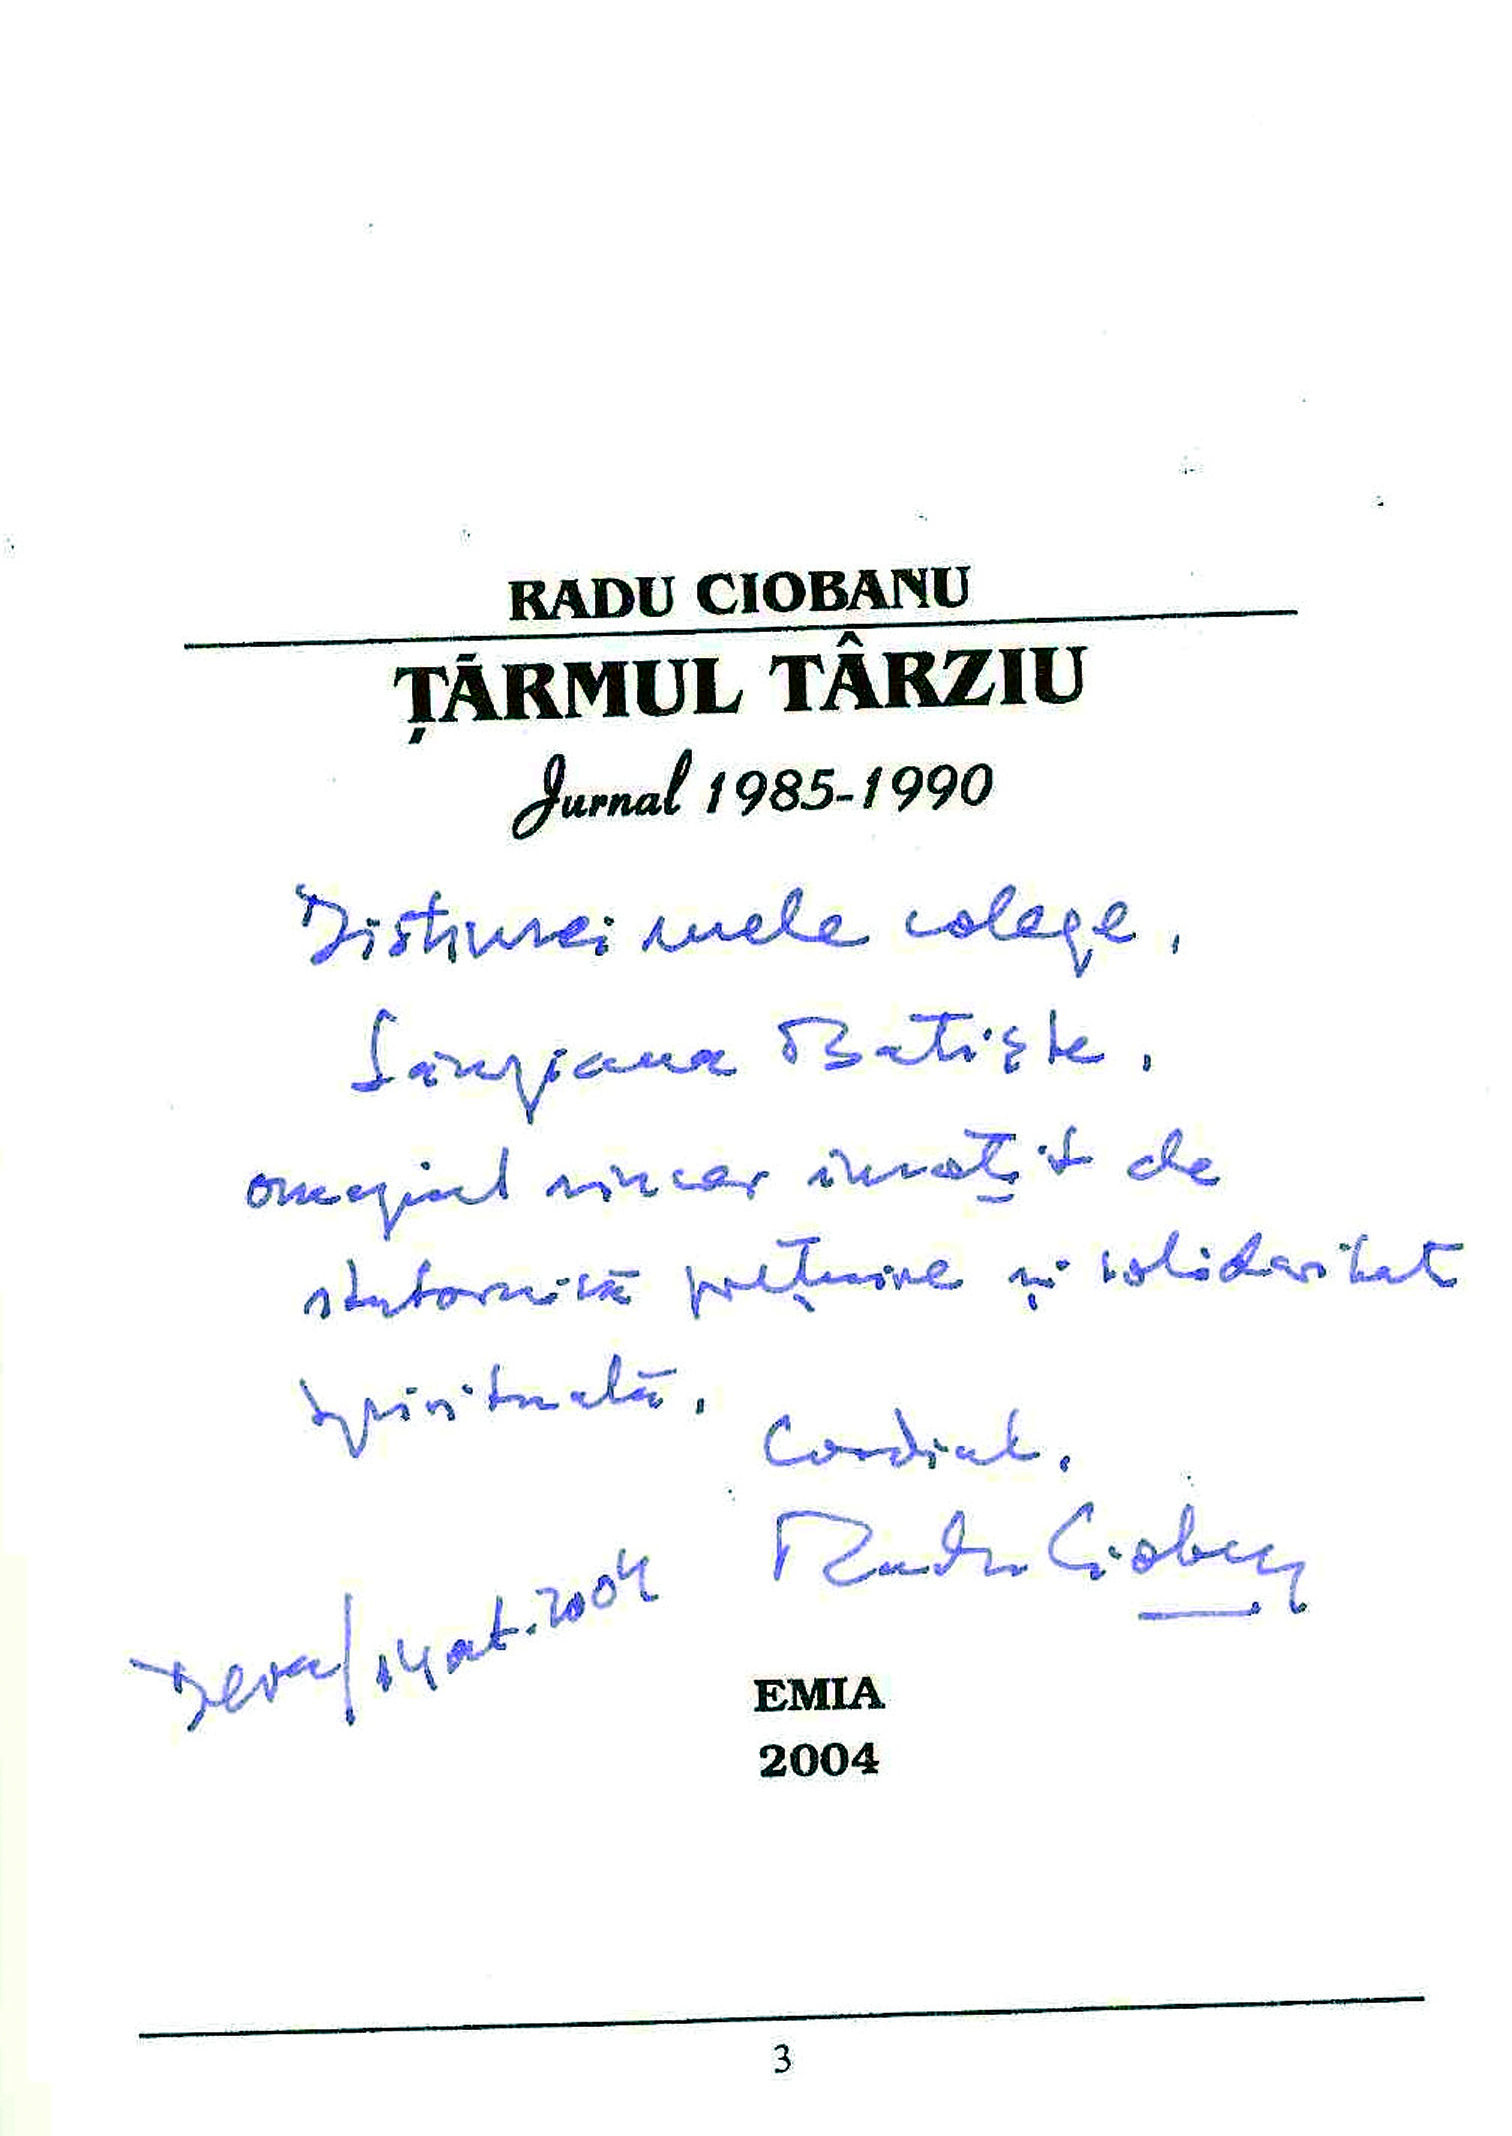 RADU CIOBANU
ȚĂRMUL TÂRZIU
Jurnal 1985-1990
Distinsei mele colege,
Sânziana Batiște,
omagiul sincer însoțit de
statornică prețuire și solidaritate
spirituală,
Cordial,
Radu Ciobanu
Deva/14 oct. 2004
EMIA
2004
3